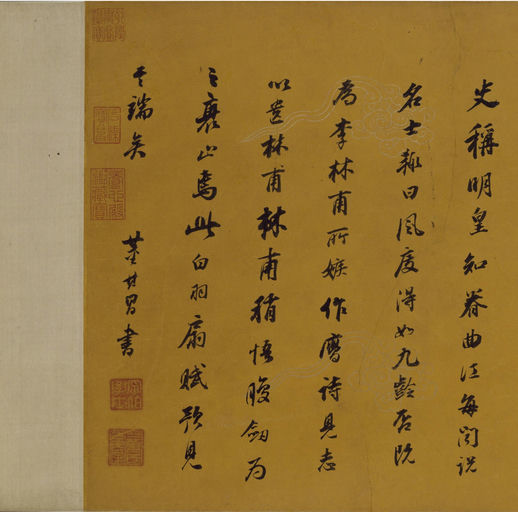 史稱明皇知眷曲江每閱說
名士輒曰風度得如九齡否既
為李林甫所嫉作鷹詩見志
以遺林甫林甫稍悟腹劍为
之衰止焉此白羽扇賦殆見
其端矣
董其昌書